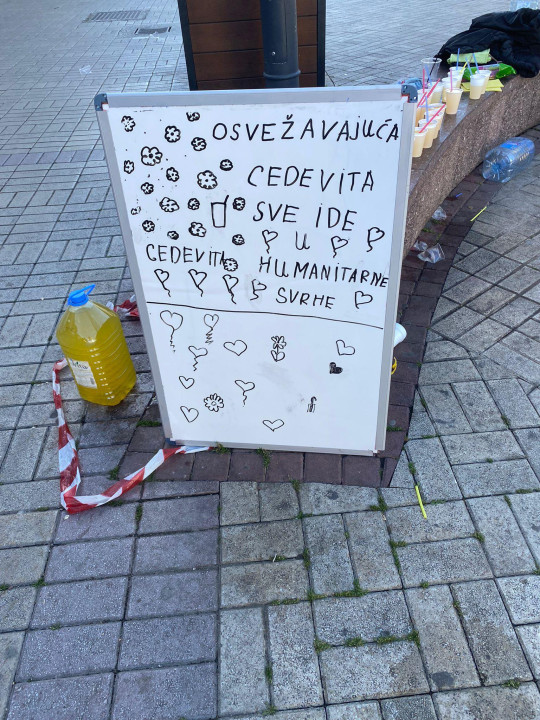 OSVEŽAVAJUĆA
CEDEVITA
SVE IDE
U
CEDEVITA
HUMANITARNE
SVRHE